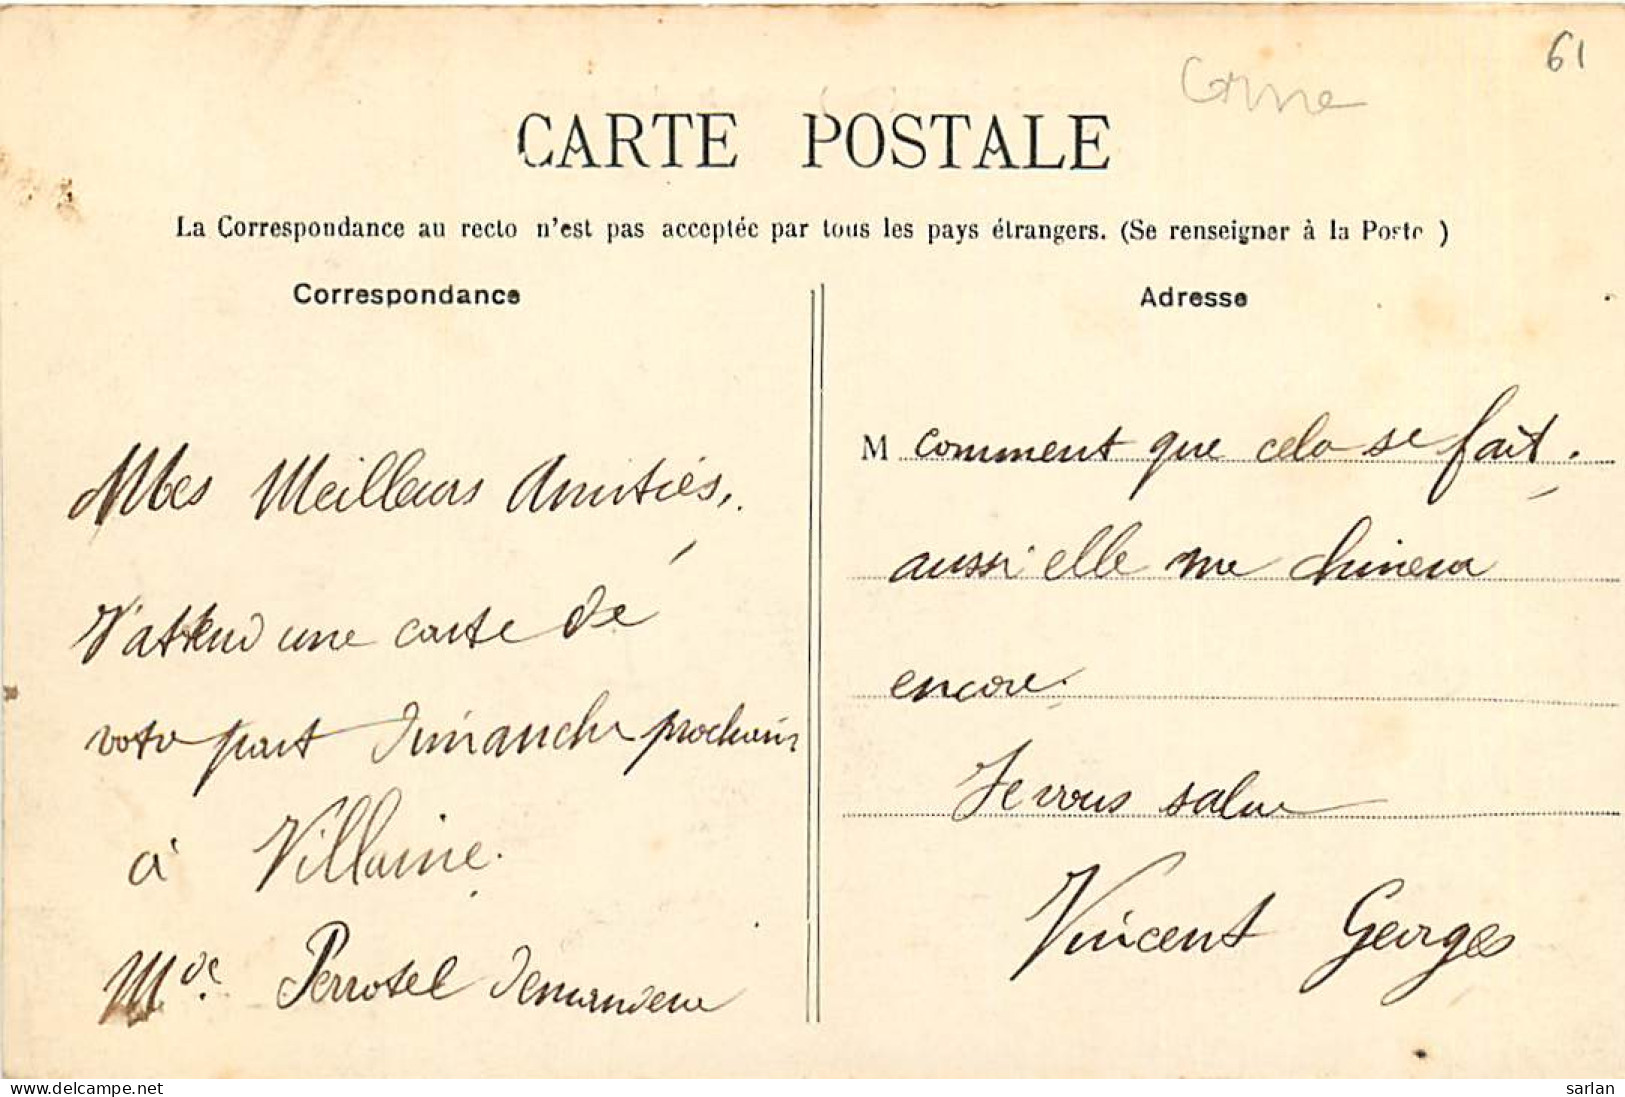 61
CARTE POSTALE
La Correspondance au recto n'est pas acceptée par tous les pays étrangers. (Se renseigner à la Poste )
Correspondance
Mes Meilleurs Amitiés,.
J'attend une carte de
votre part dimanche prochain
à Villaine.
Mde. Perrotel demandera
Adresse
M comment que cela se fait.
aussi elle me chinera
encore.
Je vous salue
Vincent Georges
www.delcampe.net
sarlan